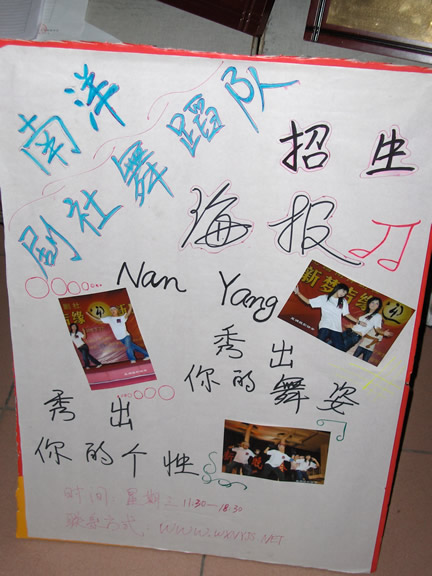 南洋
剧社舞蹈队
招生
海报
Nan Yang
秀出
你的舞姿
秀出
你的个性
时间:星期三 11:30—18:30